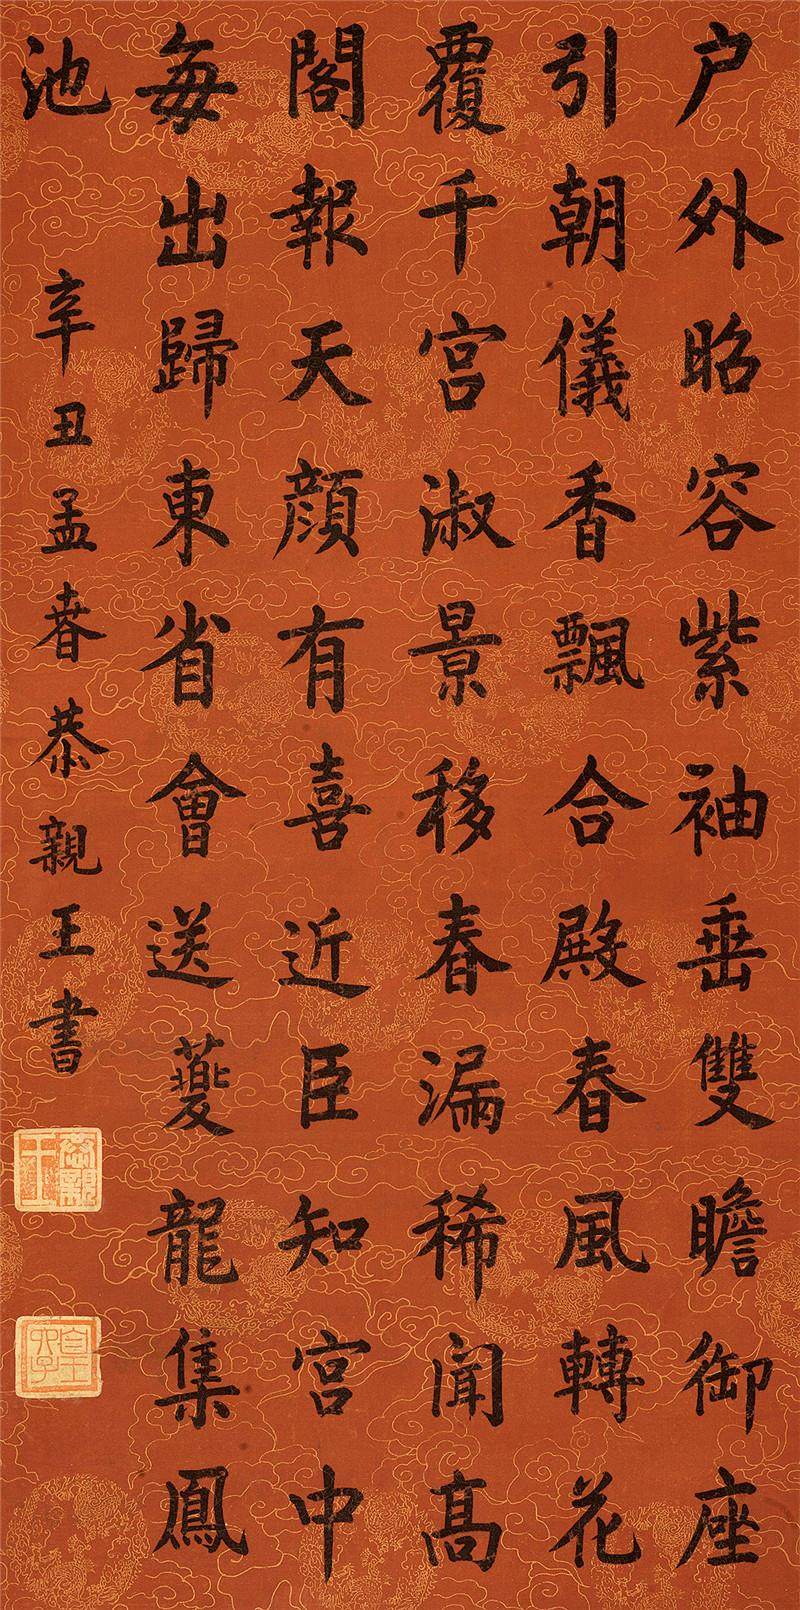 户外昭容紫袖垂雙瞻御座
引朝儀香飄合殿春風轉花
覆千宮淑景移春漏稀聞高
閣報天顏有喜近臣知宮中
每出歸東省會送夔龍集鳳
池
辛丑孟春恭親王書
恭親王
皇六子